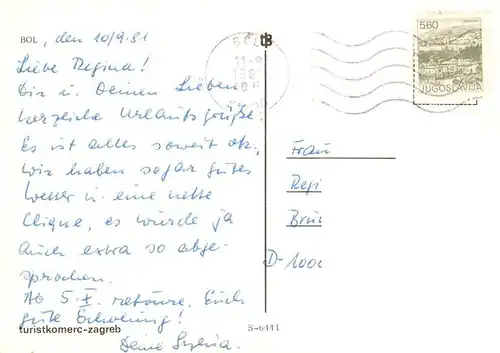 BOL, den 10/9.81
Liebe Regina!
Dir u. Deinen Lieben
herzliche Urlaubsgrüße.
Es ist alles soweit ok,
wir haben sogar gutes
Wetter u. eine nette
Clique, es wurde ja
auch extra so abge-
sprochen.
Ab 5.X. retoure, Euch
gute Erholung!
Deine Sylvia.
turistkomerc-zagreb
S-6441
BOL
11-9
5.60
JUGOSLAVIJA
Frau
Regi
D-100